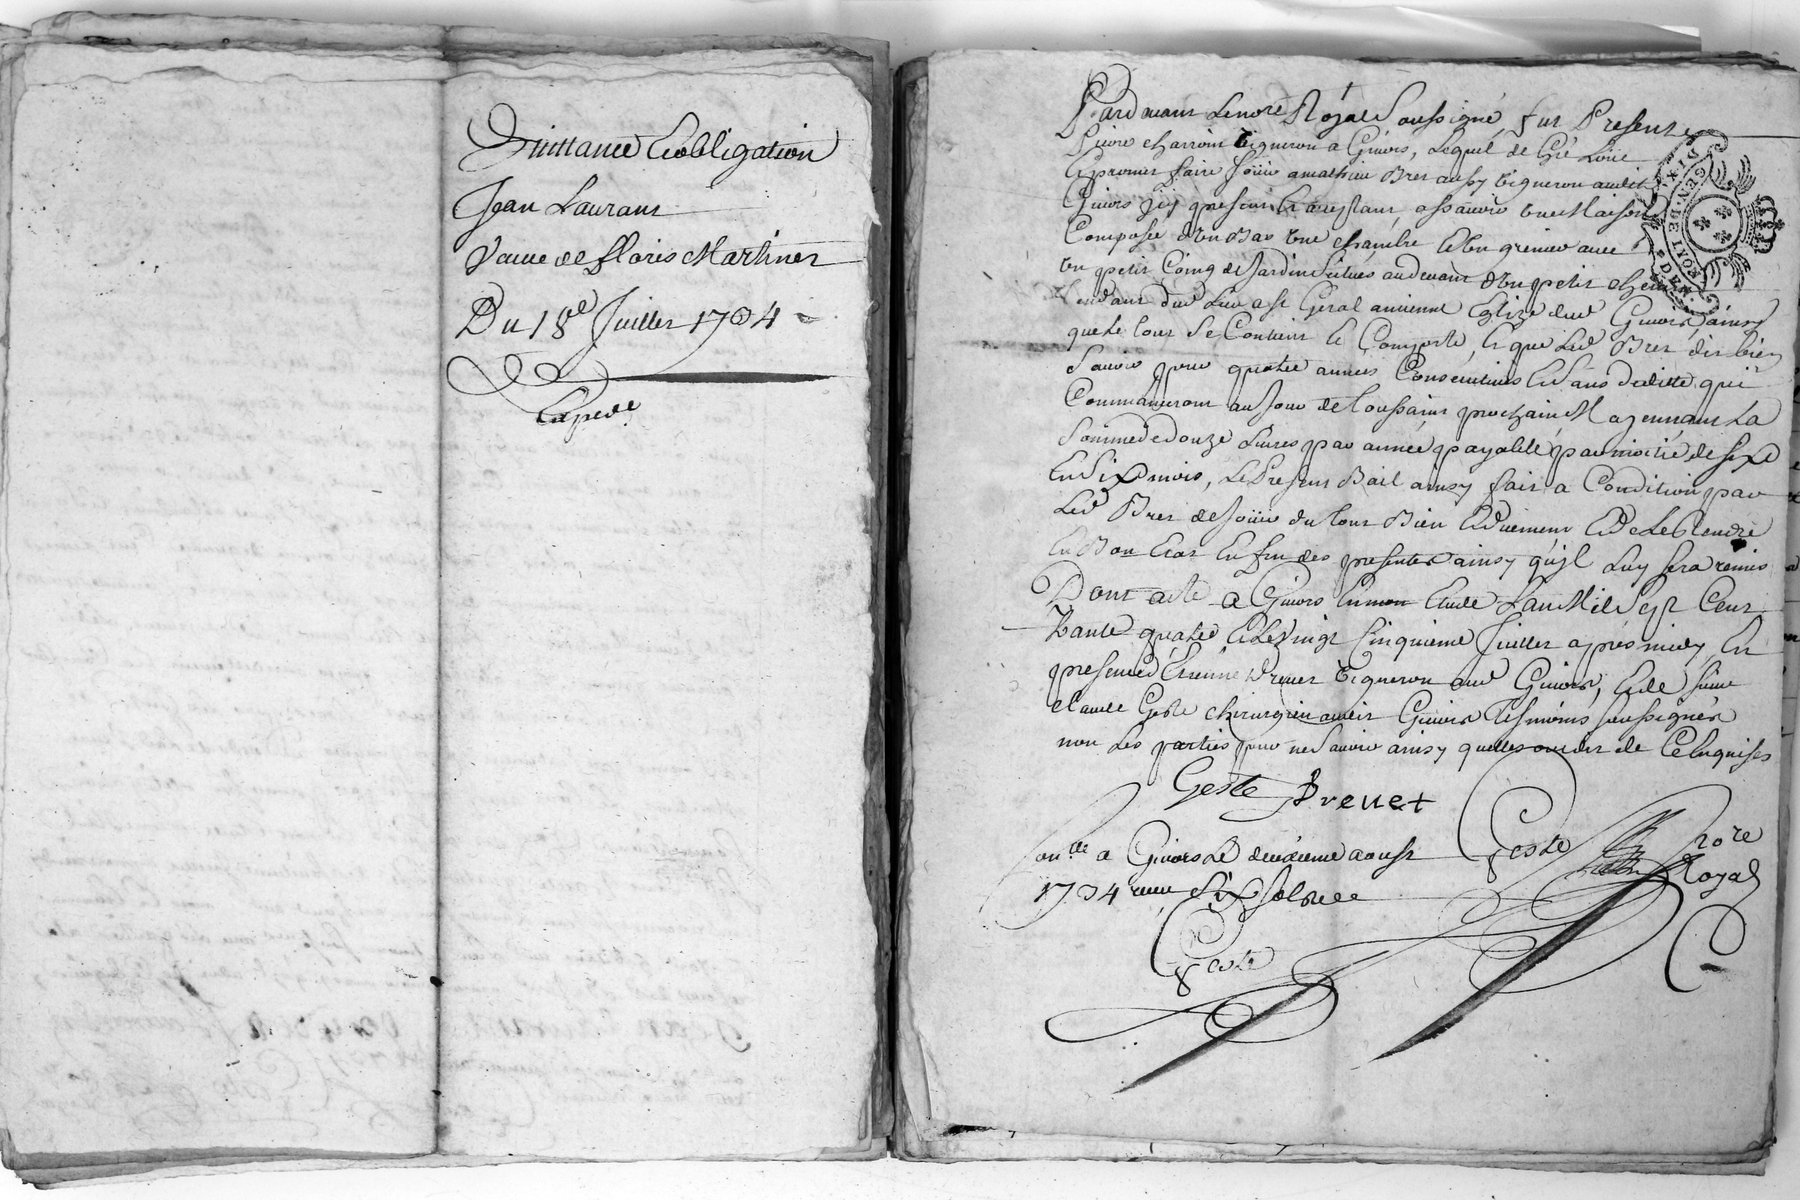 Quittance Et obligation
Jean Laurans
Vauve de floris Martinet
Du 18e Juillet 1734
Expedé
Pardevant Le no.re Royal Soussigné fut Present
Pierre charroin Vigneron a Givors, Lequel de Gré Loüe
Et promet faire Joüir a mathieu Bret aussy Vigneron audit
Givors Jcy present Et acceptant, assavoir Une Maison
Composée d'Un Bas Une chambre Et Un grenier avec
Un petit Coing de Jardin Situés au devant d'Un petit chemin
tendant dud. Lieu a St Geral ancienne Eglize dud Givors, ainsy
que Le tout Se Contient Et Comporte, Et que Led Bret dit bien
Scavoir pour quatre années Consecutives Et Sans deditte qui
Commanceront au Jour de toussaint prochain Moyennant La
Somme de douze Livres par année payable par moitié de six
En Six mois, Le Present Bail ainsy fait a Condition par
Led Bret de Joüir du tout Bien Et duement Et de Le Rendre
En Bon Etat En fin des presentes ainsy qu'jl Luy sera remis
Dont acte a Givors En mon Etude L'an Mil Sept Cent
trante quatre Et Le Vingt Cinquieme Juillet après midy, En
presence d'Etienne Drevet Vigneron aud Givors, Et de sieur
claude Geste chirurgien audit Givors tesmoins soussignés
non Les parties pour ne Scavoir ainsy quelles ont dit de Ce Enquises
Geste Drevet
Con.lle a Givors Le deuxieme aoust
1734 receu Six sols
Geste
Geste
no.re
Royal
GEN. DE LION
DIX. DEN.